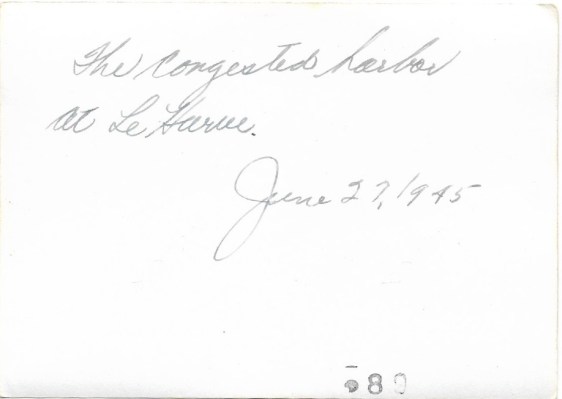 The congested harbor
at Le Harve.
June 27, 1945